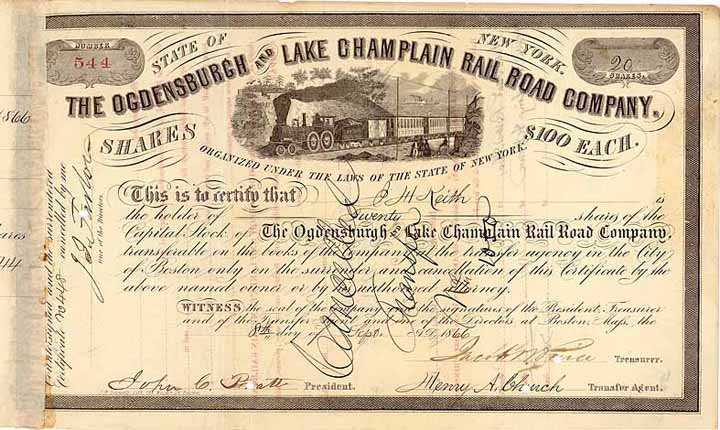 NUMBER
544
STATE OF
NEW YORK.
20
SHARES.
THE OGDENSBURGH AND LAKE CHAMPLAIN RAIL ROAD COMPANY.
SHARES
$100 EACH.
ORGANIZED UNDER THE LAWS OF THE STATE OF NEW YORK.
This is to certify that P H Keith is
the holder of Twenty shares of the
Capital Stock of The Ogdensburgh and Lake Champlain Rail Road Company,
transferable on the books of the company at the transfer agency in the City
of Boston only on the surrender and cancellation of this Certificate by the
above named owner or by his authorized attorney.
WITNESS the seal of the company and the signatures of the President, Treasurer
and of the Transfer Agent and one of the Directors at Boston, Mass, the
8th day of Sept AD 1866
Treasurer.
John C. Pratt President.
Henry A. Church Transfer Agent.
Cancelled
Countersigned and the surrendered
Certificate No 448 cancelled by me
one of the Directors
1866